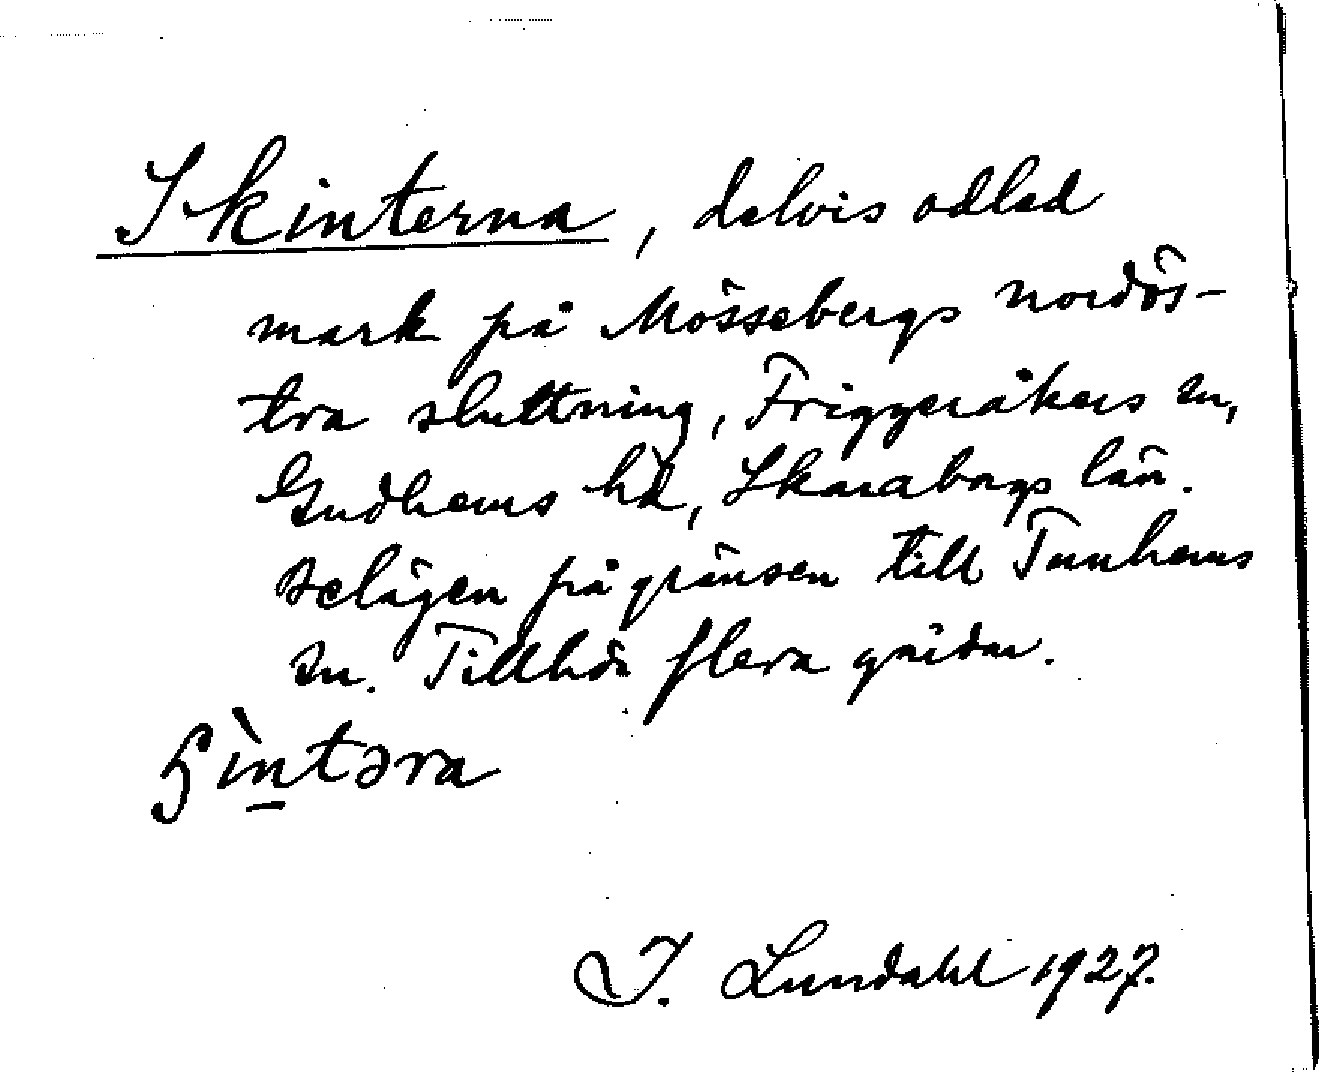 Skinterna, delvis odlad
mark på Mössebergs nordös-
tra sluttning, Friggeråkers sn,
Gudhems hd, Skaraborgs län.
Belägen på gränsen till Tunhems
sn. Tillhör flera gårdar.
ʂìn̲təra
I. Lundahl 1927.